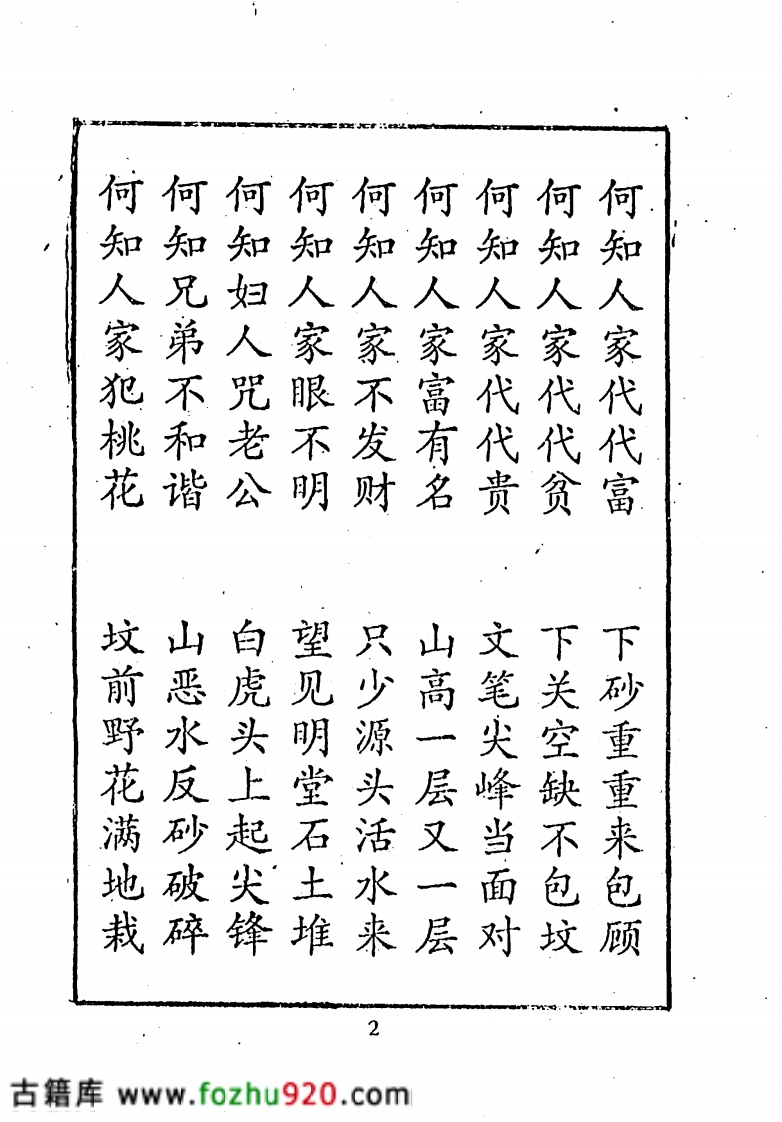 何知人家代代富 下砂重重来包顾
何知人家代代贫 下关空缺不包坟
何知人家代代贵 文笔尖峰当面对
何知人家富有名 山高一层又一层
何知人家不发财 只少源头活水来
何知人家眼不明 望见明堂石土堆
何知妇人咒老公 白虎头上起尖锋
何知兄弟不和谐 山恶水反砂破碎
何知人家犯桃花 坟前野花满地栽
2
古籍库 www.fozhu920.com